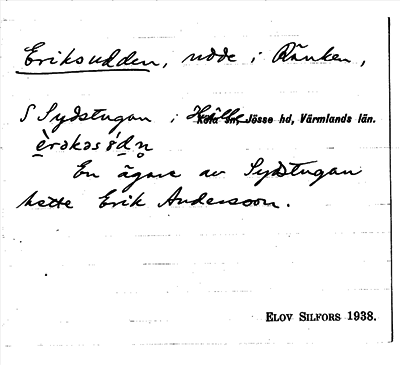 Eriksudden, udde i Ränken,
S Sydstugan i Hälle sn, Jösse hd, Värmlands län.
En ägare av Sydstugan
hette Erik Andersson.
ELOV SILFORS 1938.